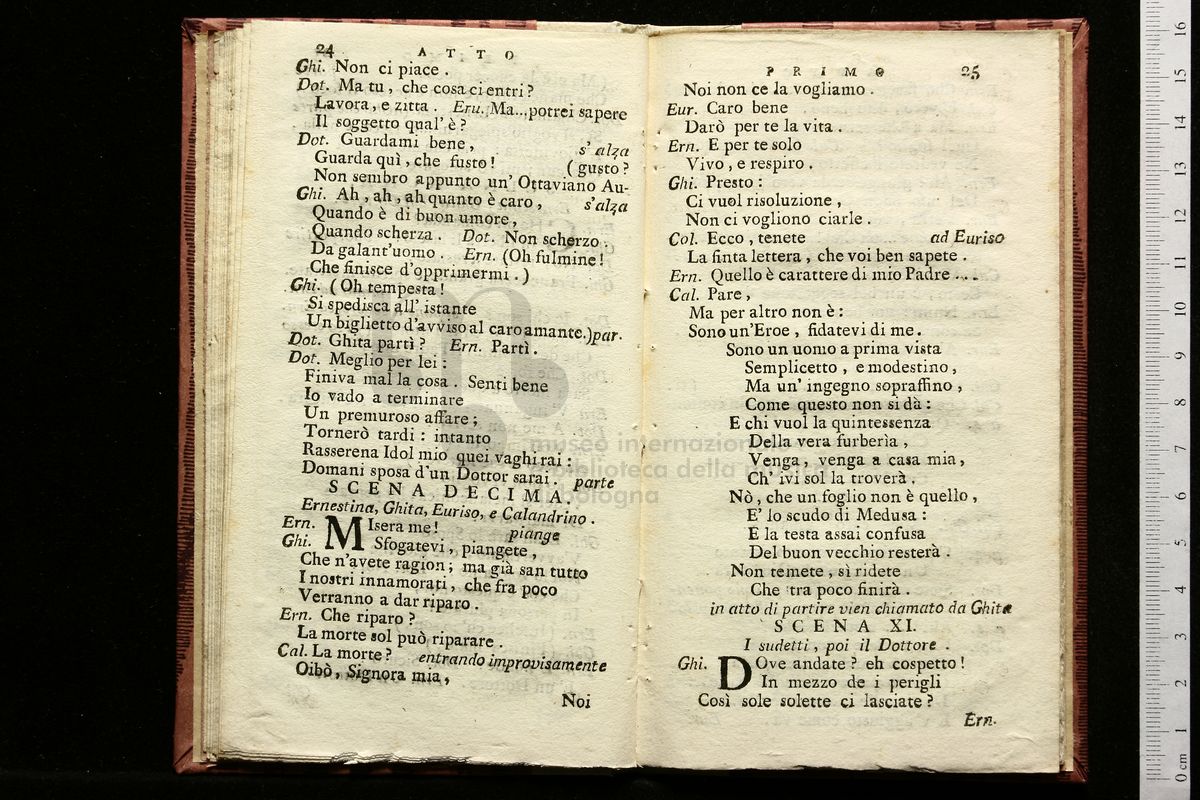 24 ATTO
Ghi. Non ci piace.
Dot. Ma tu, che cosa ci entri?
Lavora, e zitta. Eru. Ma...potrei sapere
Il soggetto qual' è?
Dot. Guardami bene, s' alza
Guarda quì, che fusto! (gusto?
Non sembro appunto un' Ottaviano Au-
Ghi. Ah, ah, ah quanto è caro, s'alza
Quando è di buon umore,
Quando scherza. Dot. Non scherzo.
Da galant'uomo. Ern. (Oh fulmine!
Che finisce d'opprimermi.)
Ghi. (Oh tempesta!
Si spedisca all' istante
Un biglietto d'avviso al caro amante.) par.
Dot. Ghita partì? Ern. Partì.
Dot. Meglio per lei:
Finiva mal la cosa. Senti bene
Io vado a terminare
Un premuroso affare;
Tornerò tardi: intanto
Rasserena Idol mio quei vaghi rai:
Domani sposa d'un Dottor sarai. parte
SCENA DECIMA.
Ernestina, Ghita, Euriso, e Calandrino.
Ern. MIsera me! piange
Ghi. Sfogatevi, piangete,
Che n'avete ragion; ma già san tutto
I nostri innamorati, che fra poco
Verranno a dar riparo.
Ern. Che riparo?
La morte sol può riparare.
Cal. La morte? entrando improvisamente
Oibò, Signora mia,
Noi
PRIMO 25
Noi non ce la vogliamo.
Eur. Caro bene
Darò per te la vita.
Ern. E per te solo
Vivo, e respiro.
Ghi. Presto:
Ci vuol risoluzione,
Non ci vogliono ciarle.
Col. Ecco, tenete ad Euriso
La finta lettera, che voi ben sapete.
Ern. Quello è carattere di mio Padre ....
Cal. Pare,
Ma per altro non è:
Sono un'Eroe, fidatevi di me.
Sono un uomo a prima vista
Semplicetto, e modestino,
Ma un' ingegno sopraffino,
Come questo non si dà:
E chi vuol la quintessenza
Della vera furberìa,
Venga, venga a casa mia,
Ch' ivi sol la troverà.
Nò, che un foglio non è quello,
E' lo scudo di Medusa:
E la testa assai confusa
Del buon vecchio resterà.
Non temete, sì ridete
Che tra poco finirà.
in atto di partire vien chiamato da Ghita
SCENA XI.
I sudetti, poi il Dottore.
Ghi. DOve andate? eh cospetto!
In mezzo de i perigli
Così sole solette ci lasciate?
Ern.
museo internazionale
biblioteca della musica
di bologna
0 cm 1 2 3 4 5 6 7 8 9 10 11 12 13 14 15 16